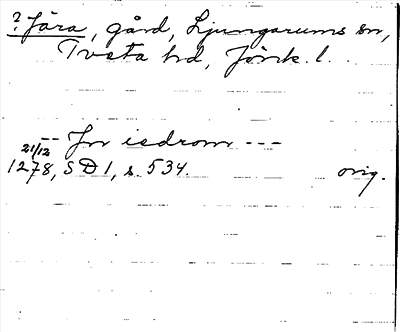 ? Jära, gård, Ljungarums sn,
Tveta hd, Jönk. l.
-- Jn isdrom ---
21/12
1278, SD 1, s. 534. orig.